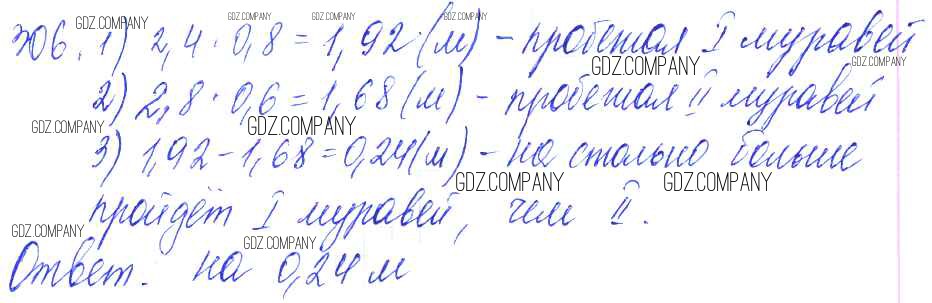 306. 1) 2,4 · 0,8 = 1,92 (м) – пробежал I муравей
2) 2,8 · 0,6 = 1,68 (м) – пробежал II муравей
3) 1,92 – 1,68 = 0,24 (м) – на столько больше
пройдёт I муравей, чем II.
Ответ. на 0,24 м
GDZ.COMPANY
GDZ.COMPANY
GDZ.COMPANY
GDZ.COMPANY
GDZ.COMPANY
GDZ.COMPANY
GDZ.COMPANY
GDZ.COMPANY
GDZ.COMPANY
GDZ.COMPANY
GDZ.COMPANY
GDZ.COMPANY